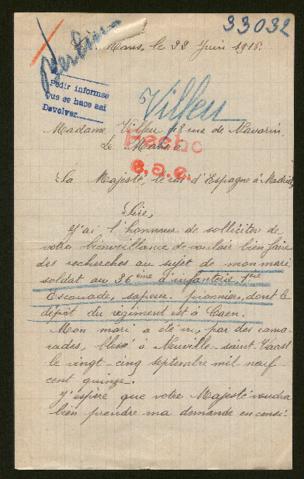 33032
Le Mans, le 22 Juin 1915.
Berlin
Pedir informes
que se hace asi
Devolver
Vilfeu
Madame Vilfeu 18 rue de Navarin
Le Mans
Hecho
e.a.e.
Sa Majesté, le roi d'Espagne à Madrid
Sire,
J'ai l'honneur de solliciter de
votre bienveillance de vouloir bien faire
des recherches au sujet de mon mari
soldat au 36ème d'infanterie, 1ère
Escouade, sapeur pionnier, dont le
dépôt du régiment est à Caen.
Mon mari a été vu, par des cama-
rades, blessé à Neuville-saint-Vaast
le vingt-cinq septembre mil neuf-
cent quinze.
J'espère que votre Majesté voudra
bien prendre ma demande en consi-